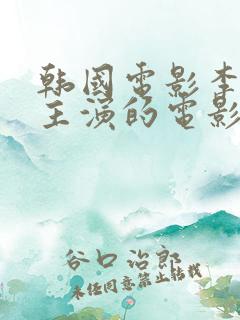 韩國電影李
主演的電影
谷口治郎
未经同意禁止转载